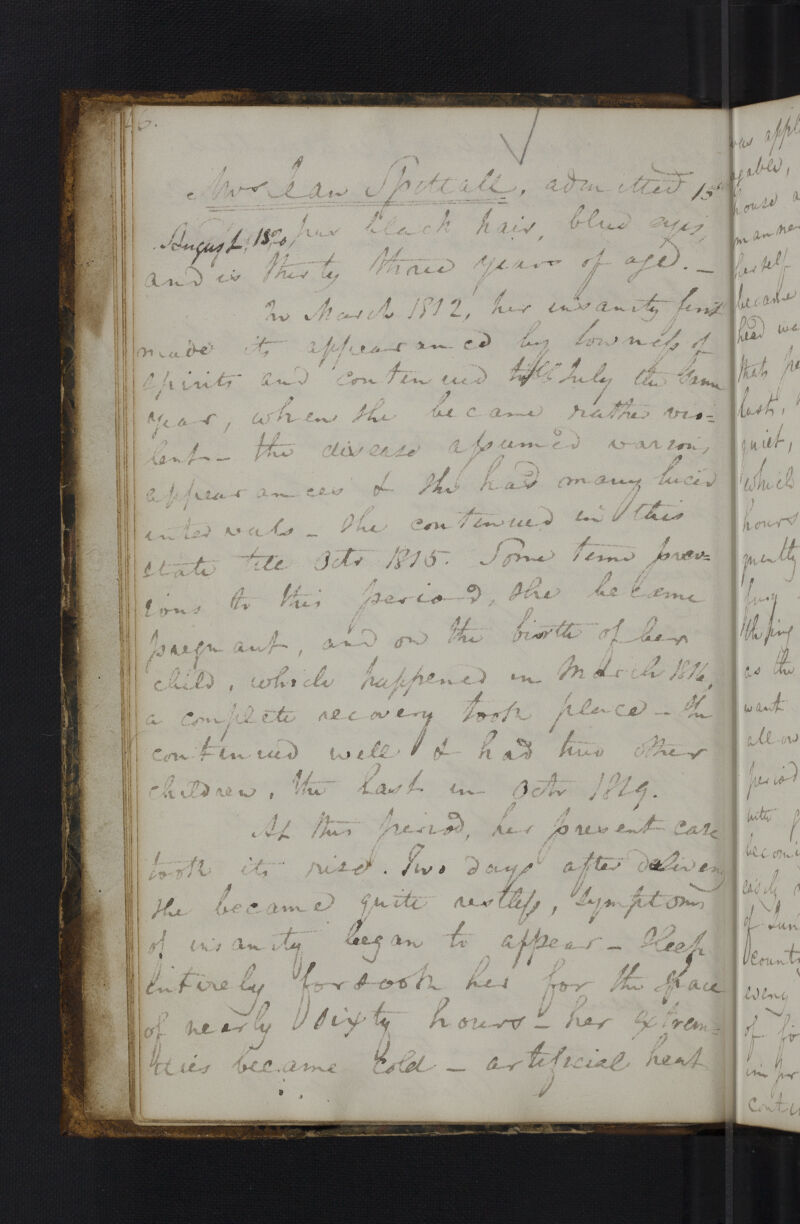 46.
Mrs Jean Spittall, admitted 15th
August 1820, has black hair, blue eyes,
and is thirty three years of age. —
In March 1812, her insanity first
made its appearance by lowness of
spirits and continued till July the same
year, when she became rather vio=
lent — the disease assumed various
appearances & she had many lucid
intervals — she continued in this
state till Octr 1815. Some time prev=
ious to this period, she became
pregnant, and on the birth of her
child, which happened in March 1816,
a complete recovery took place — She
continued well & had two other
children, the last in Octr 1819.
At this period, her present case
took its rise. Two days after delivery
she became quite restless, symptoms
of insanity began to appear — Sleep
entirely forsook her for the space
of nearly sixty hours — her extrem=
ities became cold — artificial heat
was appl
house a
manner
herself
became
head wa
that pe
last,
quiet,
which
hours
quently
fury
as the
want
allow
period
becomi
easily
of Jun
county
every
of fi